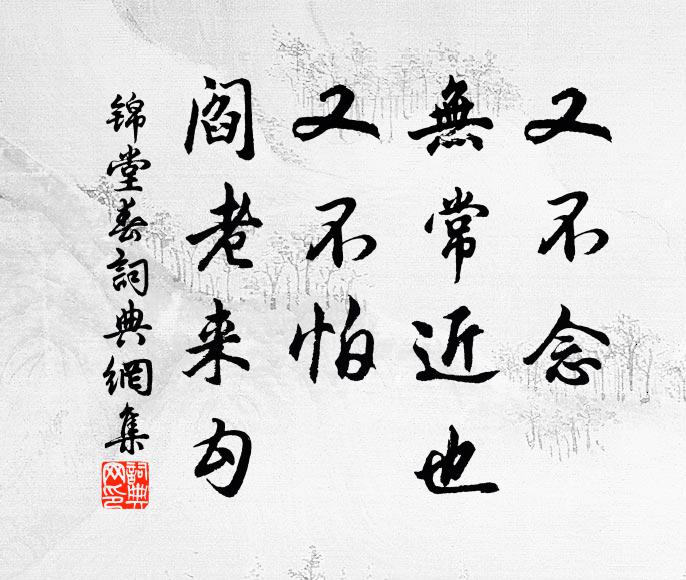 又不念
無常近也
又不怕
阎老来勾
锦堂春詞典網集
詞典网印